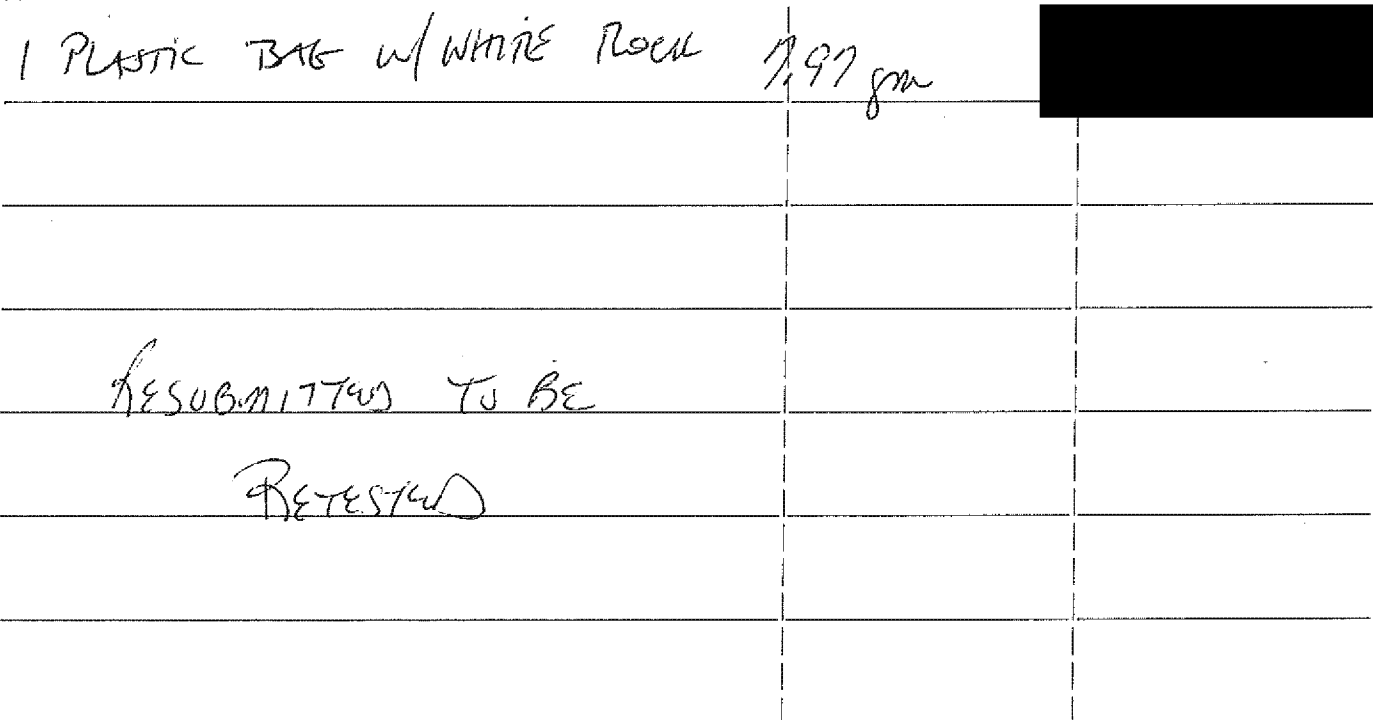 1 PLASTIC BAG W/ WHITE ROCK 7.97 gm
RESUBMITTED TO BE
RETESTED